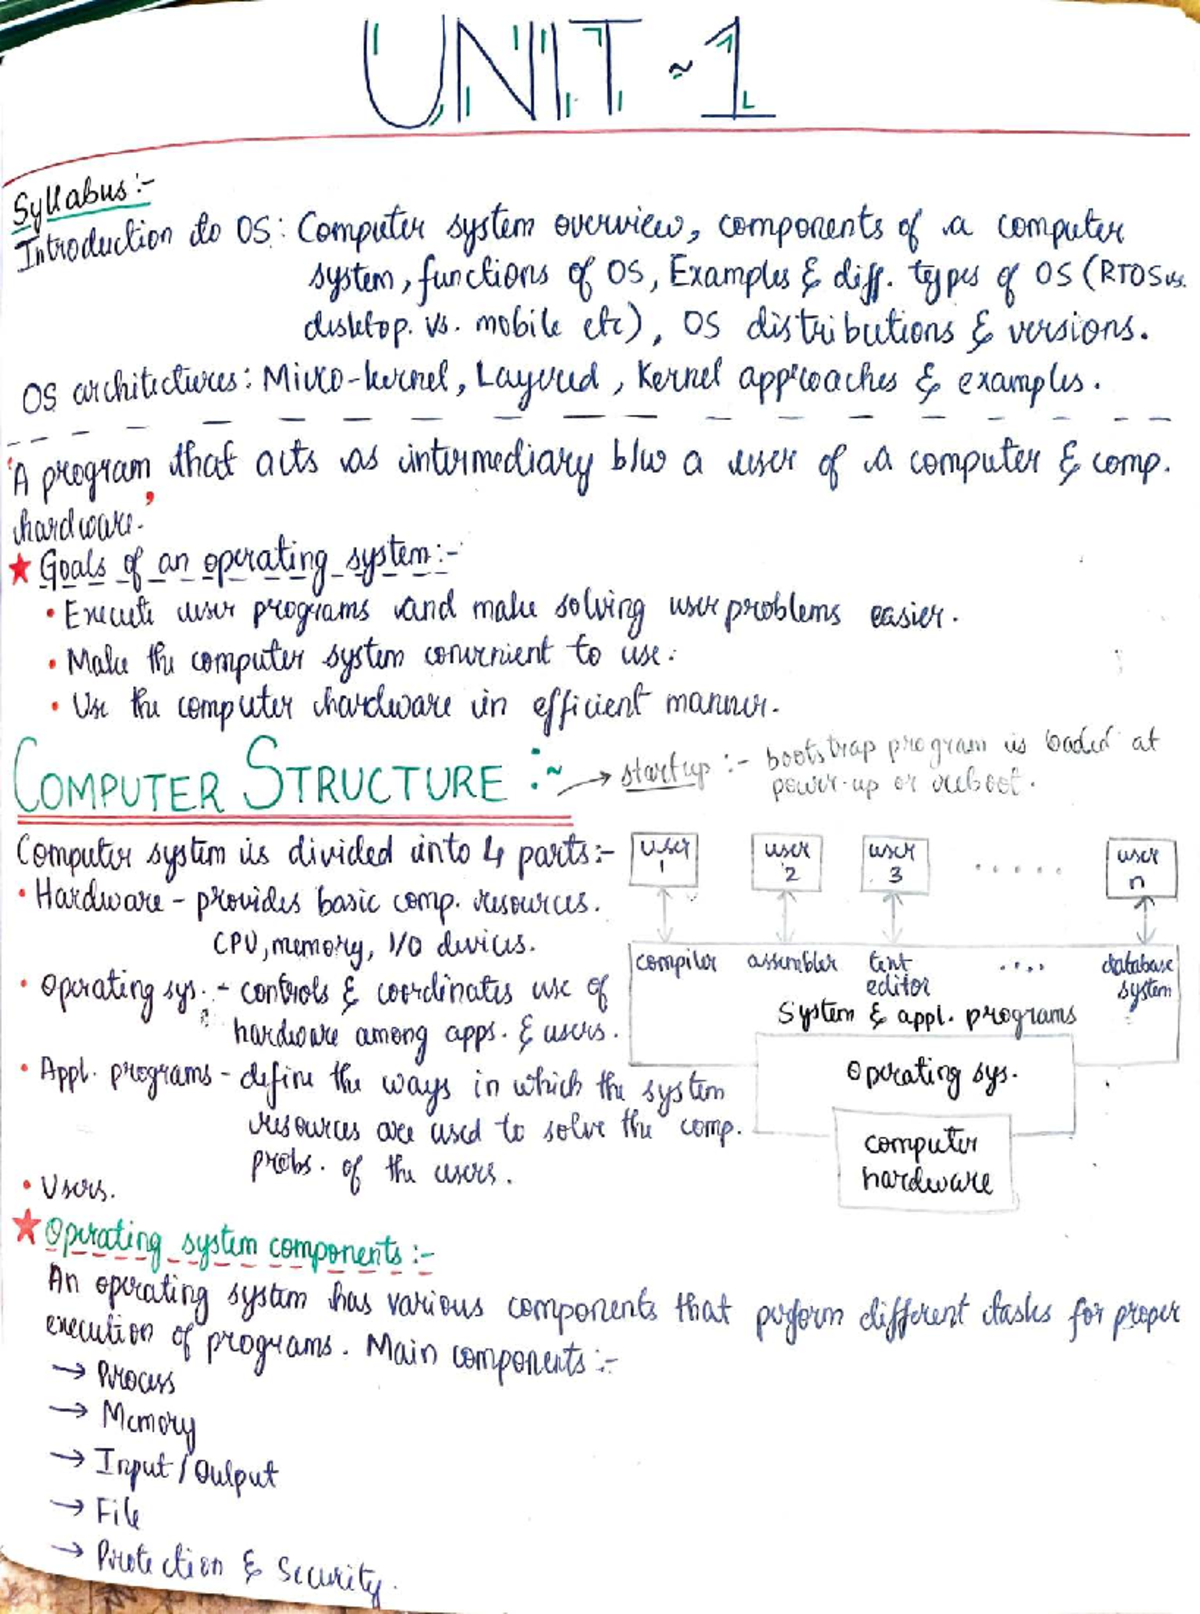 UNIT ~ 1
Syllabus :-
Introduction to OS : Computer system overview, components of a computer
system, functions of OS, Examples & diff. types of OS (RTOS vs.
desktop. vs. mobile etc), OS distributions & versions.
OS architectures : Micro-kernel, Layered, Kernel approaches & examples.
'A program that acts as intermediary b/w a user of a computer & comp.
hardware.'
★ Goals of an operating system :-
• Execute user programs and make solving user problems easier.
• Make the computer system convenient to use.
• Use the computer hardware in efficient manner.
COMPUTER STRUCTURE :~ → startup :- bootstrap program is loaded at
power-up or reboot.
Computer system is divided into 4 parts :-
• Hardware - provides basic comp. resources.
CPU, memory, I/O devices.
• Operating sys. - controls & coordinates use of
hardware among apps. & users.
• Appl. programs - define the ways in which the system
resources are used to solve the comp.
probs. of the users.
• Users.
user 1
user 2
user 3
. . . . .
user n
compiler assembler text editor .... database system
System & appl. programs
Operating sys.
computer
hardware
★ Operating system components :-
An operating system has various components that perform different tasks for proper
execution of programs. Main components :-
→ Process
→ Memory
→ Input / Output
→ File
→ Protection & Security.